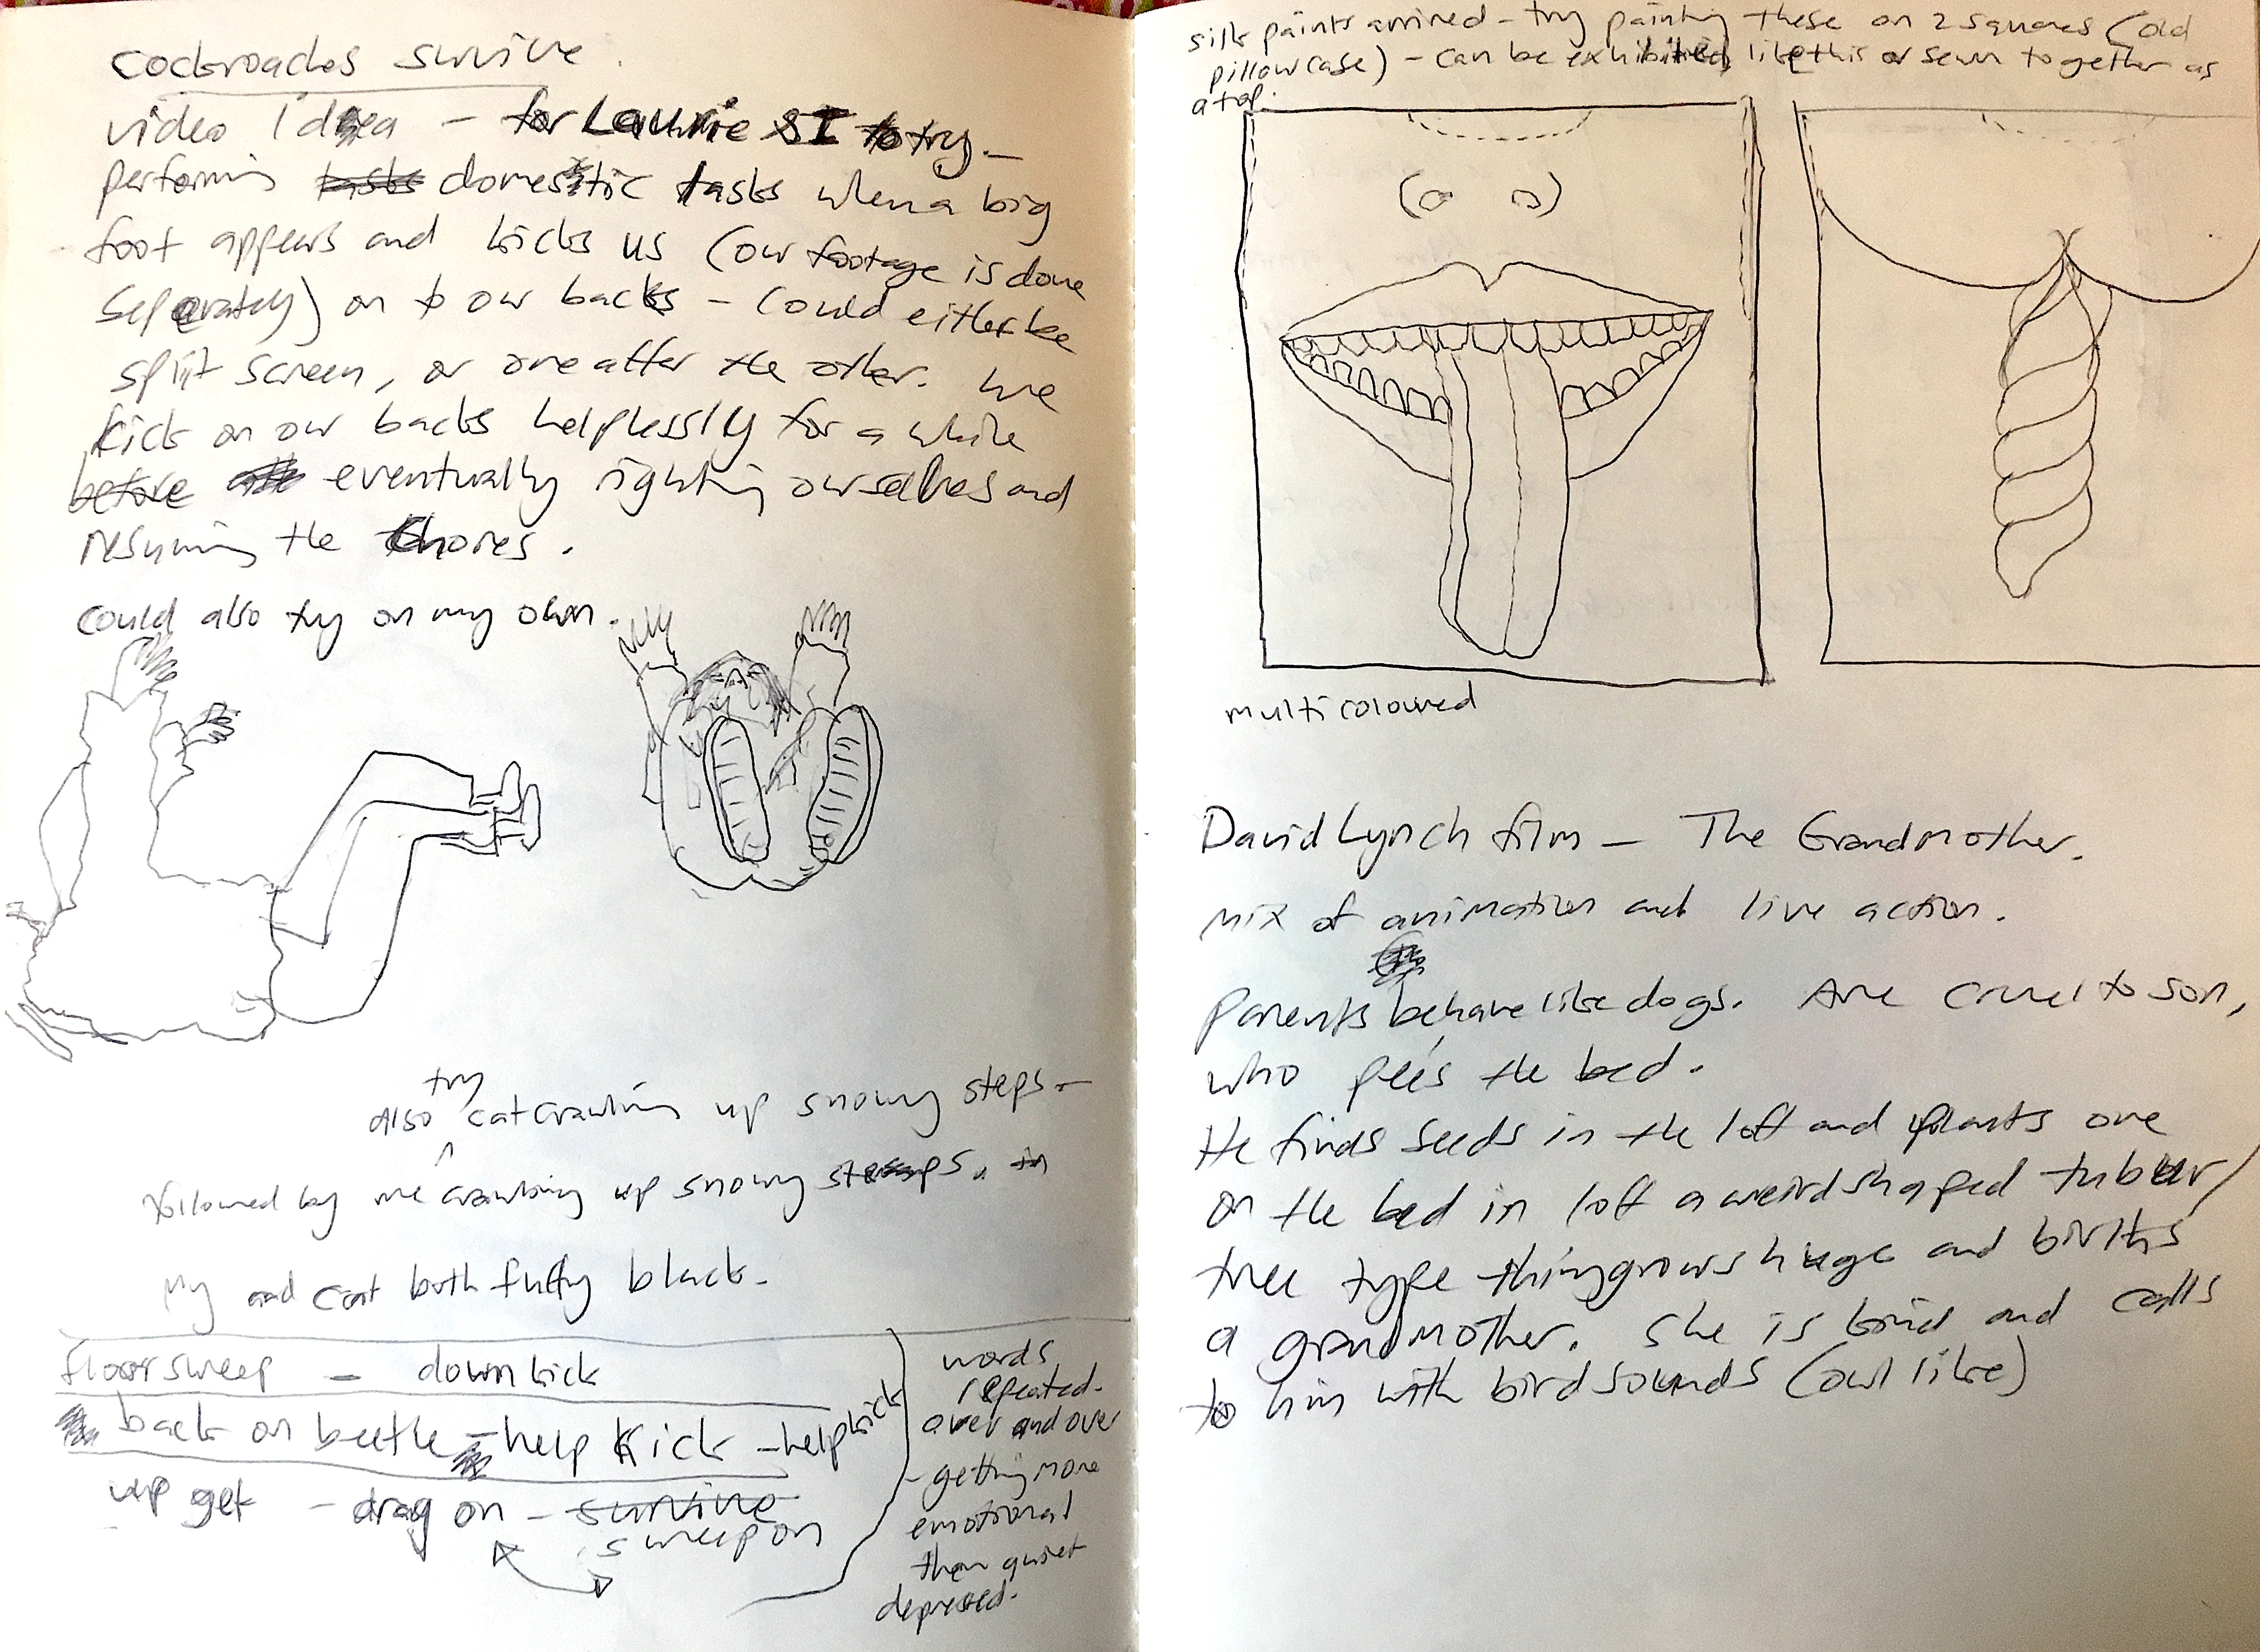 cockroaches survive.
video Idea - for Laurie & I to try -
performing tasks domestic tasks when a big
foot appears and kicks us (our footage is done
seperately) on to our backs - could either be
split screen, or one after the other. We
kick on our backs helplessly for a while
before eventually righting ourselves and
resuming the Chores.
could also try on my own.
also try cat crawling up snowy steps -
followed by me crawling up snowy steps. in
My and cat both fluffy black.
floor sweep - down kick
back on beetle - help kick - help kick
up get - drag on - survive
sweep on
words
repeated
over and over
- getting more
emotional
then quiet
depressed.
silk paints arrived - try painting these on 2 squares (old
pillowcase) - can be exhibited like this or sewn together as
a top.
multicoloured
David Lynch film - The Grandmother.
mix of animation and live action.
Parents behave like dogs. Are cruel to son,
who pees the bed.
He finds seeds in the loft and plants one
on the bed in loft a weird shaped tuber/
tree type thing grows huge and births
a grandmother. She is kind and calls
to him with bird sounds (owl like)